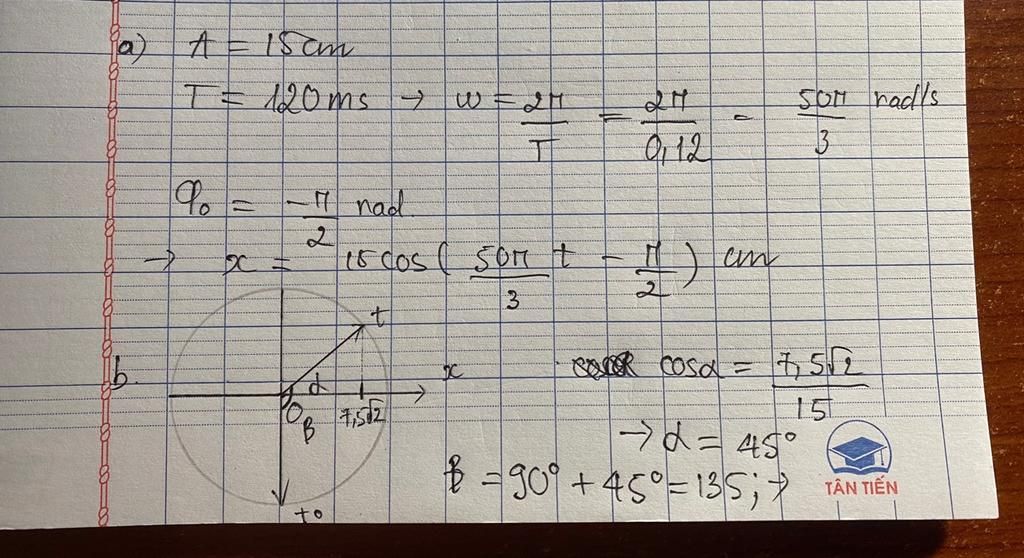 a) A = 15cm
T = 120ms → ω = 2π/T = 2π/0,12 = 50π/3 rad/s
φ₀ = -π/2 rad
→ x = 15cos(50π/3 t - π/2) cm
b.
t
x
α
O
β
7,5√2
t₀
cosα = 7,5√2/15
→ α = 45°
β = 90° + 45° = 135; →
TÂN TIẾN